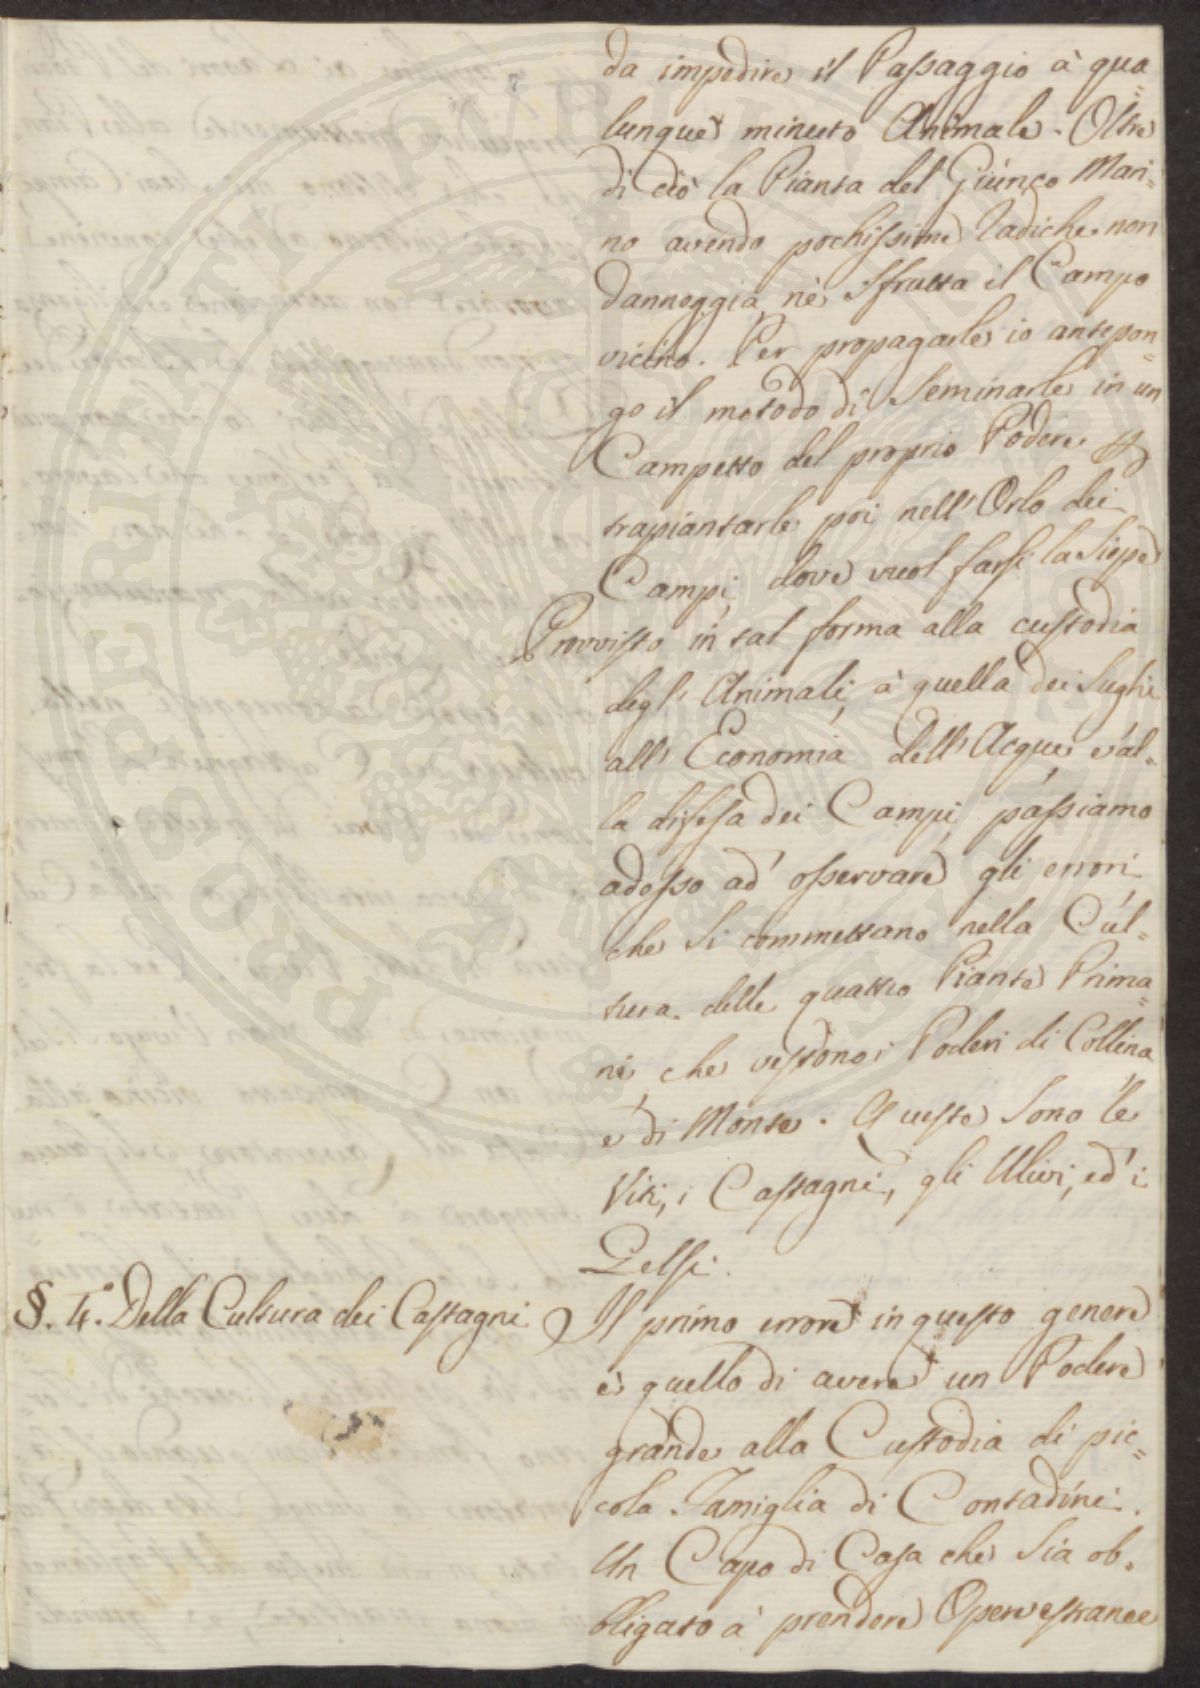 da impedire il Passaggio à qua=
lunque minuto Animale. Oltre
di ciò la Pianta del Giunco Mari=
no avendo pochissime radiche non
danneggia, nè sfrutta il Campo
vicino. Per propagarle io antepon=
go il metodo di Seminarle in un
Campetto del proprio Podere, e
trapiantarle poi nell' Orlo dei
Campi, dove vuol farsi la Siepe
Provvisto in tal forma alla custodia
degl' Animali, à quella dei Sughi
all' Economia dell' Acque, e al=
la difesa dei Campi, passiamo
adesso ad' osservare gli errori
che si commettano nella Cul=
tura delle quattro Piante Prima=
rie, che vestono i Poderi di Collina
e di Monte. Queste sono le
Viti, i Castagni, gli Ulivi, ed' i
Gelsi.
§. 4.º Della Cultura dei Castagni
Il primo errore in questo genere
è quello di avere un Podere
grande alla Custodia di pic=
cola Famiglia di Contadini.
Un Capo di Casa che sia ob=
bligato à prendere Opere estranee
PROSPERITATI PUBLICAE